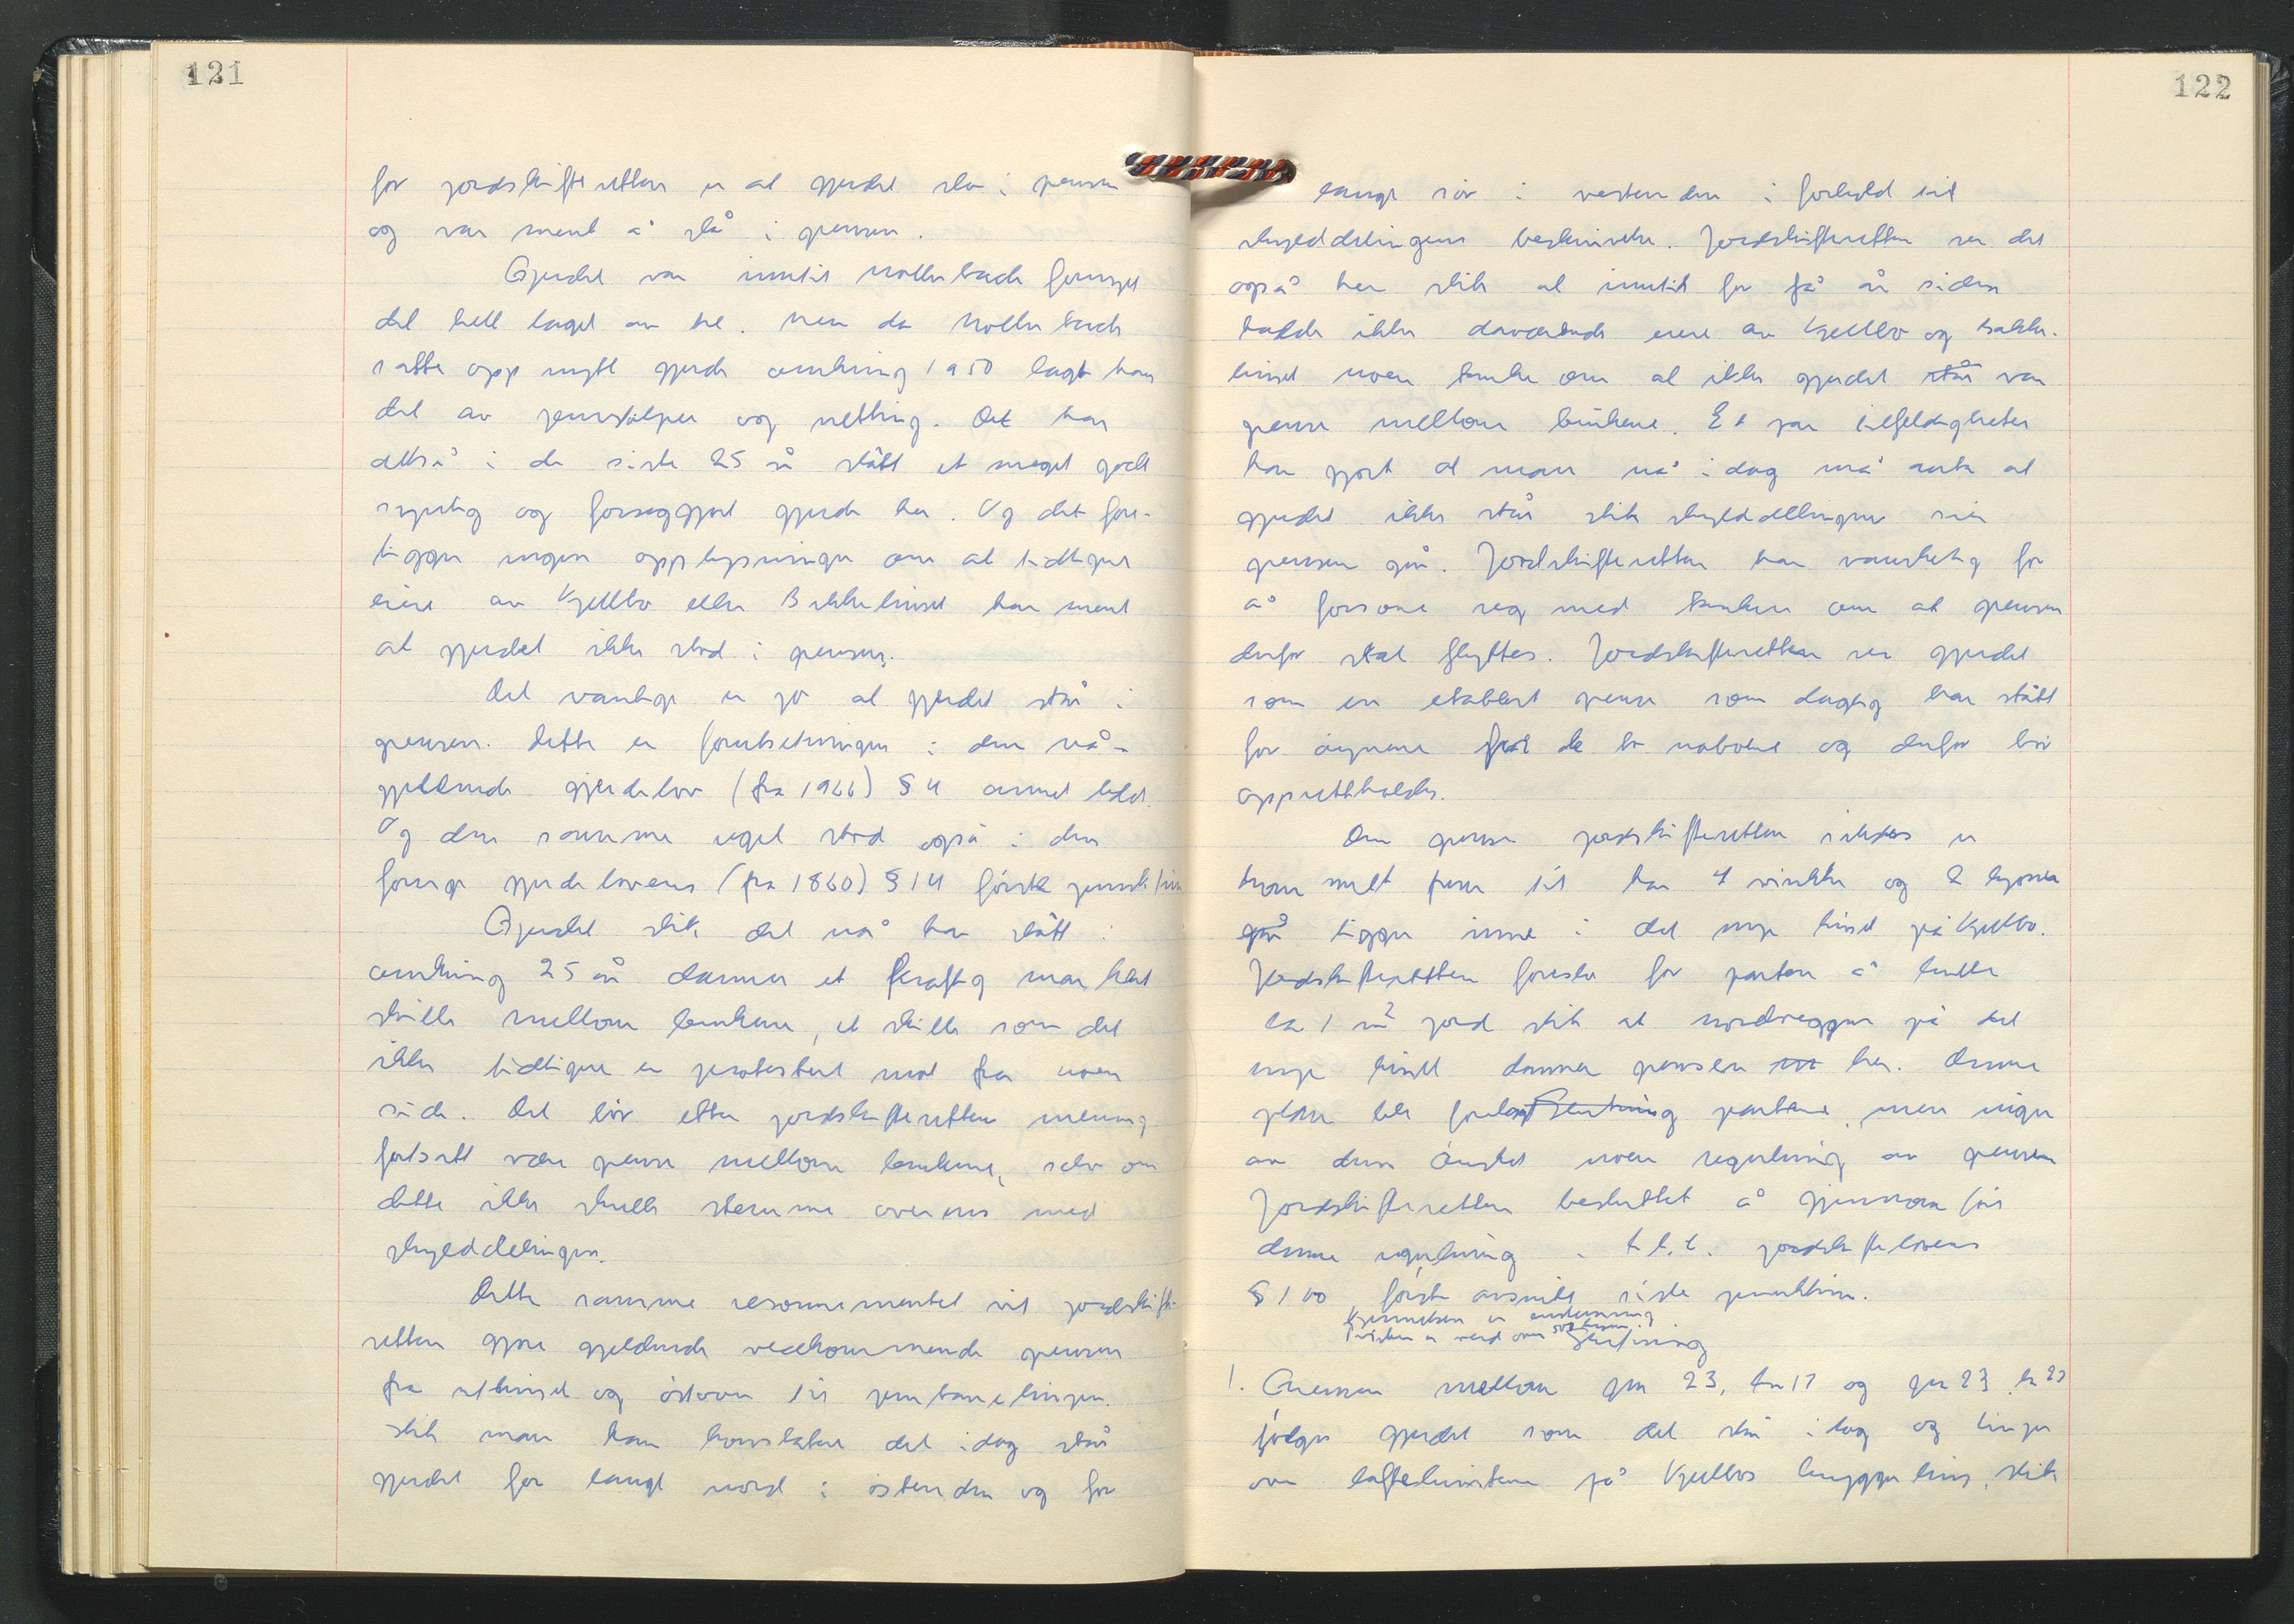 121
for jordskifteretten er at gjerdet står i grensen
og var ment å stå i grensen.
Gjerdet var inntil Møllerbach fornyet
det helt laget av tre. Men da Møllerbach
satte opp nytt gjerde omkring 1950 lagt han
det av jernstolper og netting. Det har
altså i de siste 25 år stått et meget godt
synlig og forseggjort gjerde her. Og det fore-
ligger ingen opplysninger om at tidligere
eiere av Kjellbo eller Bakkehuset har ment
at gjerdet ikke stod i grensen.
Det vanlige er jo at gjerdet står i
grensen. Dette er forutsetningen i den nå-
gjeldende gjerdelov (fra 1966) § 4 annet ledd.
Og den samme regel stod også i den
forrige gjerdelovens (fra 1860) § 14 første punktum
Gjerdet slik det nå har stått i
omkring 25 år danner et kraftig markert
skille mellom brukene, et skille som det
ikke tidligere er protestert mot fra noen
side. Det bør etter jordskifterettens mening
fortsatt være grense mellom brukene, selv om
dette ikke skulle stemme overens med
skylddelingen.
Dette samme resonnementet vil jordskifte-
retten gjøre gjeldende vedkommende grensen
fra uthuset og østover til jernbanelinjen.
Slik man kan konstatere det idag står
gjerdet for langt nord i østenden og for
122
langt sør i vestenden i forhold til
skylddelingens beskrivelse. Jordskifteretten ser det
også her slik at inntil for få år siden
hadde ikke daværende eiere av Kjellbo og Bakke-
huset noen tanke om at ikke gjerdet står var
grense mellom brukene. Et par tilfeldigheter
har gjort at man nå idag må anta at
gjerdet ikke står slik skylddelingen sier
grensen går. Jordskifteretten har vanskelig for
å forsone seg med tanken om at grensen
derfor skal flyttes. Jordskifteretten ser gjerdet
som en etablert grense som daglig har stått
for øynene for de to naboene og derfor bør
opprettholdes.
Den grense jordskifteretten
kom frem til har 4 vinkler og 2
går ligger inne i det nye huset på Kjellbo.
Jordskifteretten foreslo for partene å
ca 1 m² jord slik at nordveggen på det
nye huset danner grensen her. Denne
plan ble forelagt Slutning partene, men ingen
av dem ønsket noen regulering av grensen
Jordskifteretten besluttet å gjennomføre
denne regulering i h.t. jordskiftelovens
§ 100 første avsnitt siste punktum.
Kjennelsen er enstemmig
Slutning
1. Grensen mellom gnr 23, bnr 17 og gnr 23, bnr 27
følger gjerdet som det står i dag og linjer
over på Kjellbos bryggerhus, slik